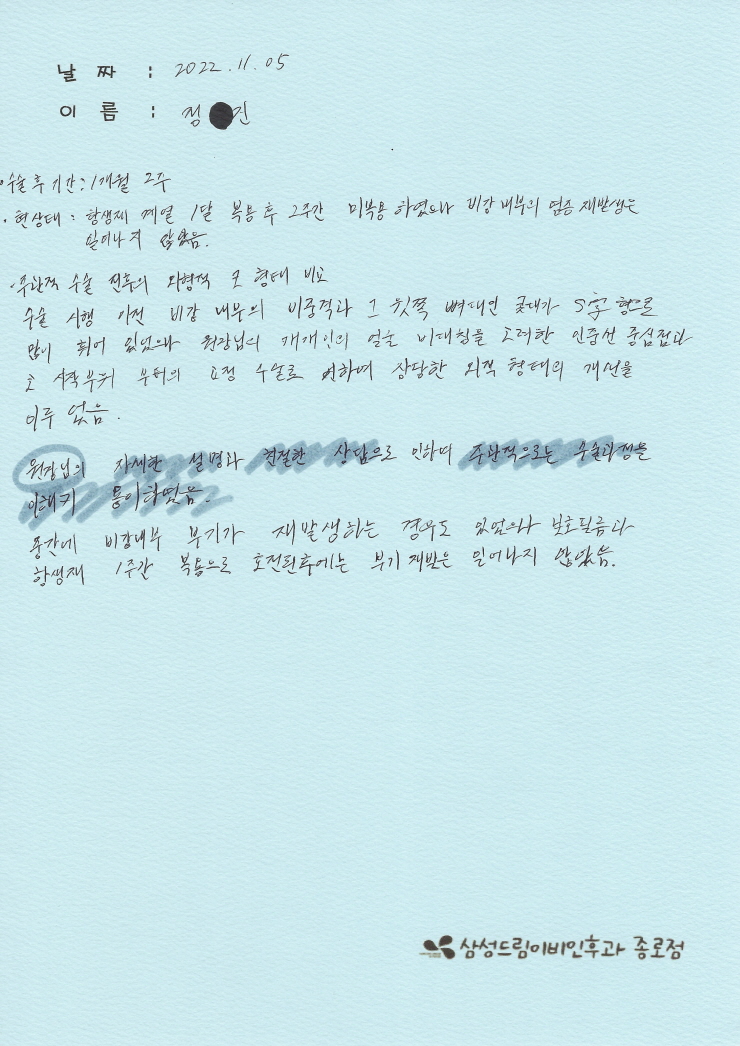 날 짜 : 2022.11.05
이 름 : 정 진
·수술 후 기간 : 1개월 2주
·현상태 : 항생제 계열 1달 복용 후 2주간 미복용 하였으나 비강 내부의 염증 재발생은
일어나지 않았음.
·주관적 수술 전후의 외형적 코 형태 비교
수술 시행 이전 비강 내부의 비중격과 그 윗쪽 뼈대인 콧대가 S字형으로
많이 휘어 있었으나 원장님의 개개인의 얼굴 비대칭을 고려한 인중선 중심점과
코 시작부위 부터의 교정 수술로 인하여 상당한 외적 형태의 개선을
이루 었음.
원장님의 자세한 설명과 친절한 상담으로 인하여 주관적으로는 수술과정을
이해키 용이하였음.
중간에 비강내부 부기가 재발생하는 경우도 있었으나
항생제 1주간 복용으로 호전된후에는 부기 재발은 일어나지 않았음.
삼성드림이비인후과 종로점